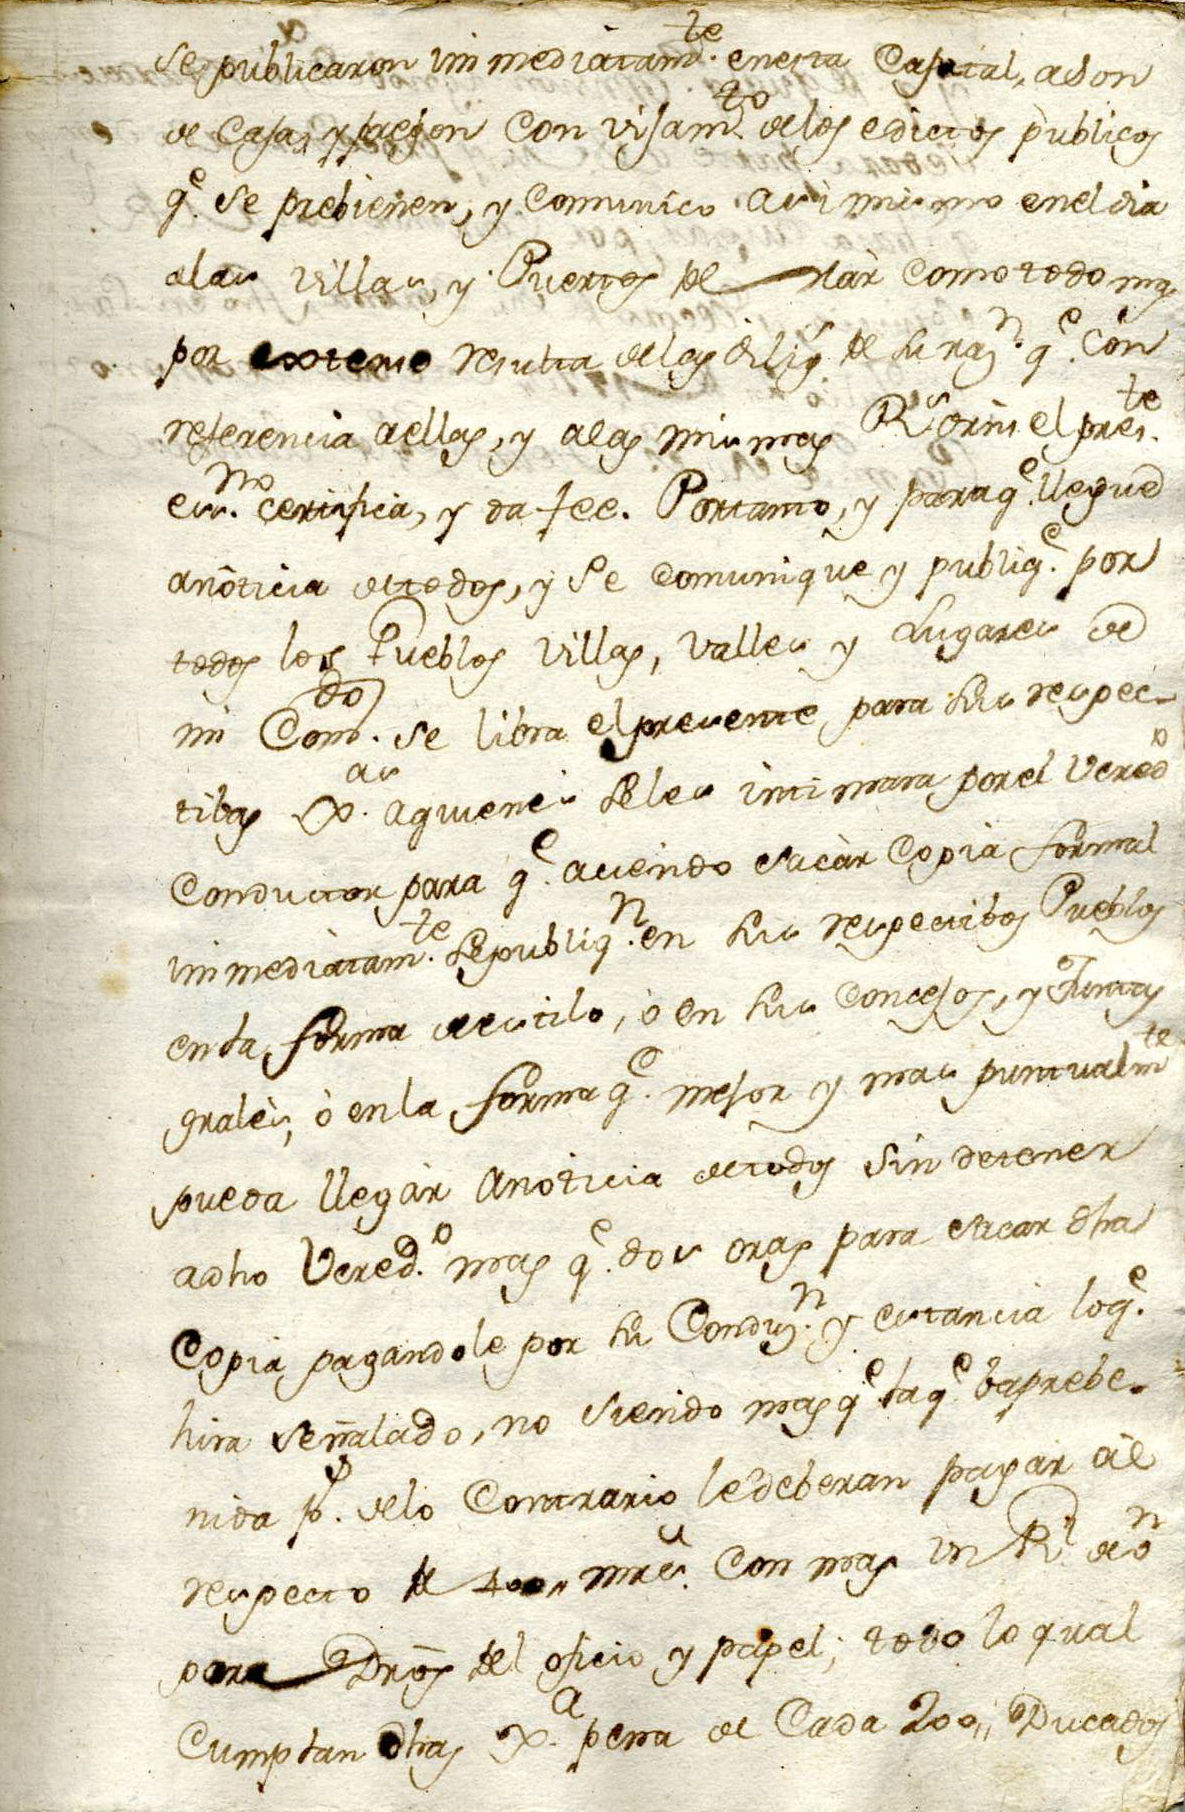 se publicaron immediatamte. en esta Capital, a son
de Cajas, y pregon con vijamto. de los edictos publicos
qe. se prebienen, y comunico asi mismo en el dia
a las Villas, y Puertos de Mar como todo mas
por extenso resulta de las diligs. de su razn. qe. con
referencia a ellas, y a las mismas Rs orns el preste.
essno. certifica, y da fee. Portanto, y para qe. llegue
a noticia de todos, y se comunique y publiqe. por
todos los Pueblos Villas, Valles y Lugares de
mi Comdo. se libra el presente para sus respec-
tibas Xas. a quienes se les intimara por el Veredo
conductor para qe. aciendo sacar Copia formal
immediatamte. se publiqn. en sus respectibos Pueblos
en la forma de estilo, ò en sus Concejos, y Juntas
grales, ò en la forma qe. mejor y mas puntualmte
pueda llegar a noticia de todos sin detener
a dho Veredo. mas qe. dos oras para sacar dha
Copia pagandole por su Conduzn. y estancia lo qe.
hira señalado, no siendo mas qe la qe. ba prebe-
nida p. de lo contrario le deberan pagar al
respecto de 400 mrs. con mas un Rl de von
para Dros del oficio y papel; todo lo qual
Cumplan dhas Xa. pena de Cada 200 Ducados